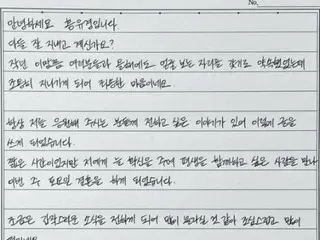 No.
안녕하세요 홍유경입니다.
다들 잘 지내고 계신가요?
작년 이맘쯤 여러분들과 올해에도 얼굴 보는 자리를 갖기로 약속했었는데
조용히 지나가게 되어 죄송한 마음이네요.
항상 저를 응원해 주시는 분들께 전하고 싶은 이야기가 있어 이렇게 글을
쓰게 되었습니다.
짧은 시간이었지만 저에게 큰 확신을 주며 평생을 함께하고 싶은 사람을 만나
이번 주 토요일 결혼을 하게 되었습니다.
조금은 갑작스러운 소식을 전하게 되어 많이 놀라실 것 같아 조심스럽고 많이